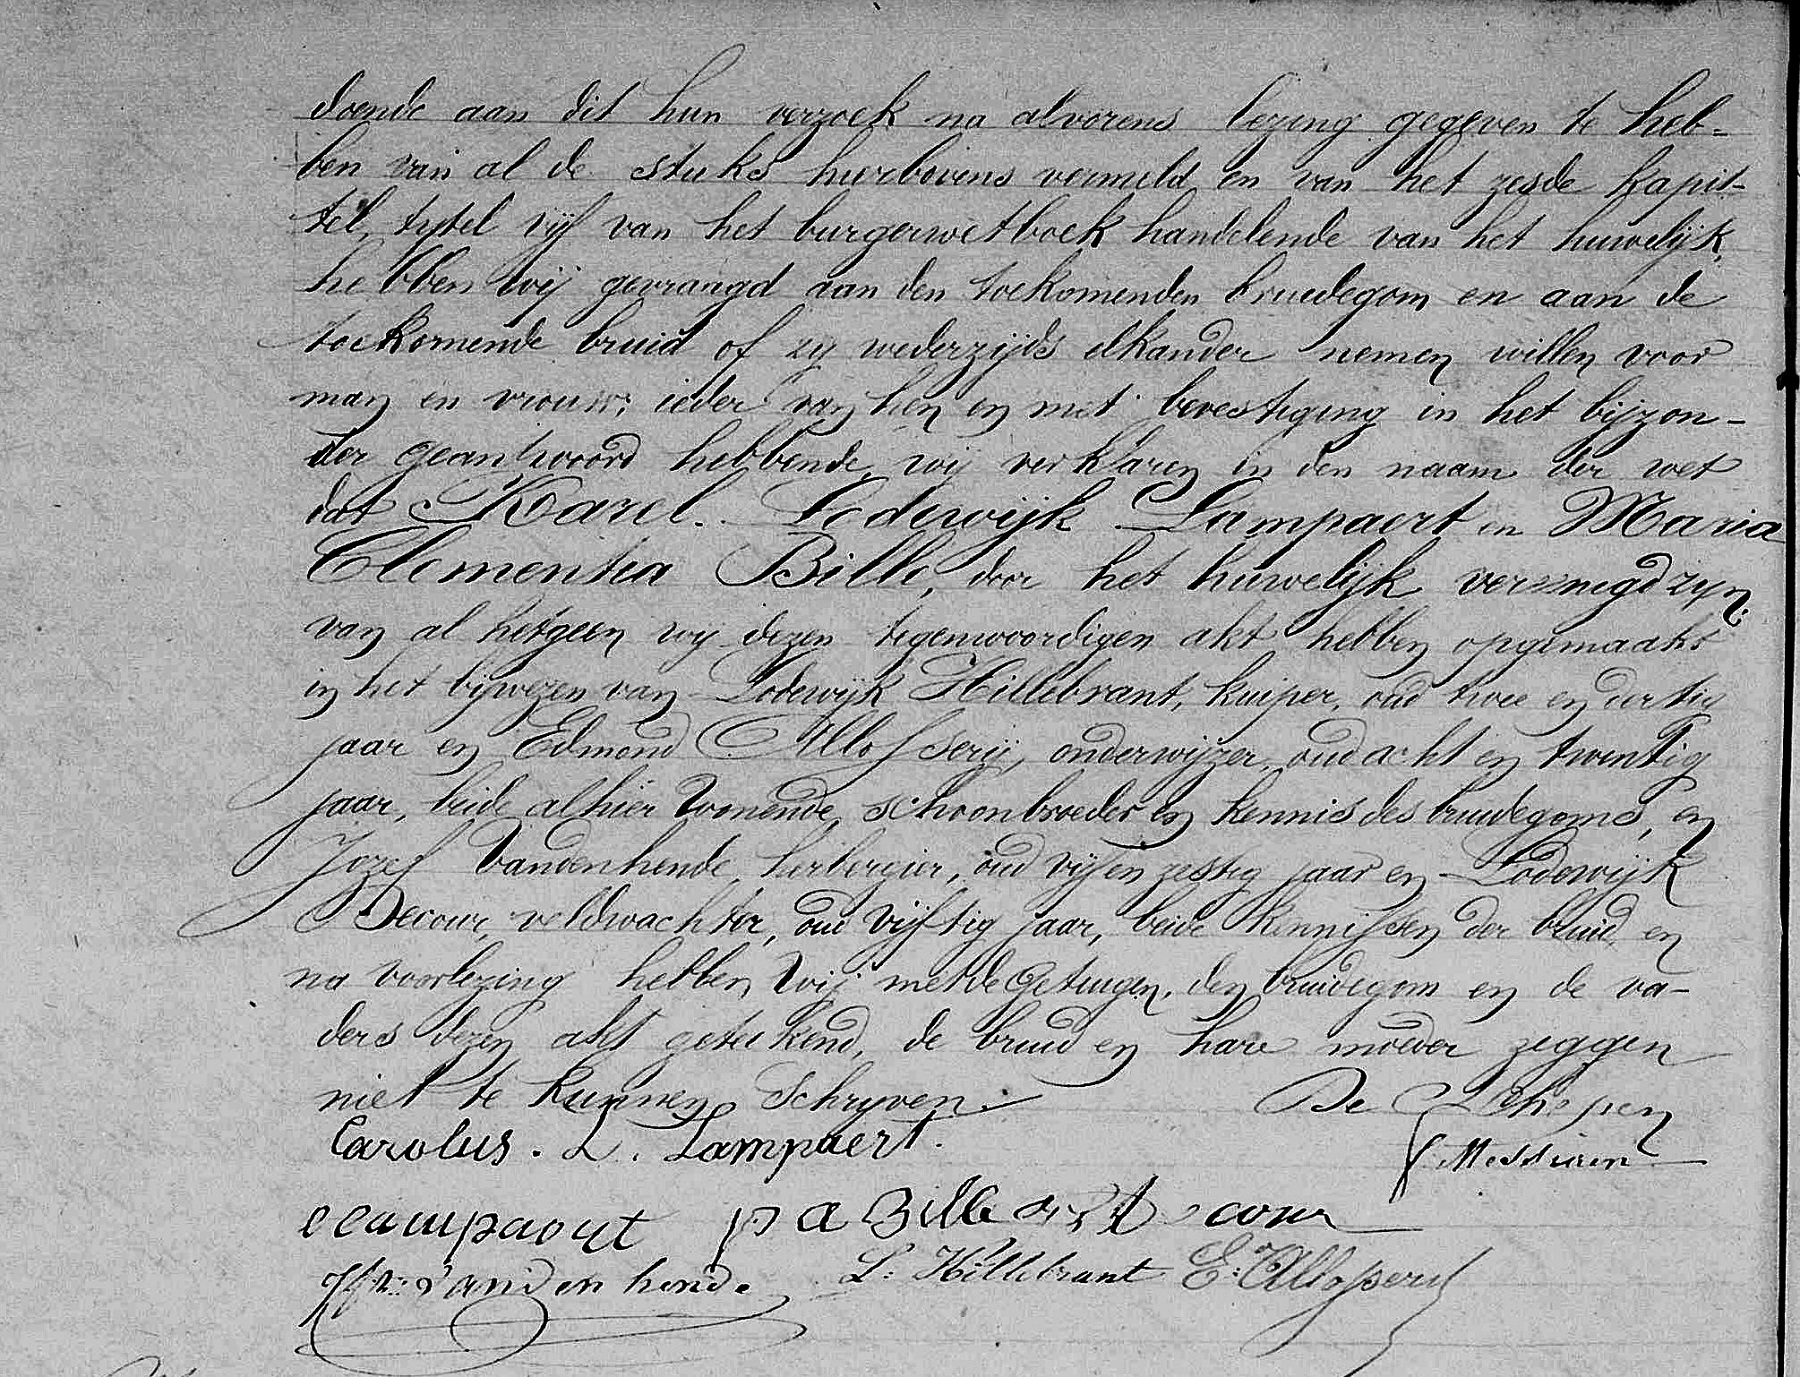 doende aan dit hun verzoek na alvorens lezing gegeven te heb-
ben van al de stuks hierbovens vermeld en van het zesde kapit-
tel, tytel vijf van het burgerwetboek handelende van het huwelijk,
hebben wij gevraagd aan den toekomenden bruidegom en aan de
toekomende bruid of zy wederzijds elkander nemen willen voor
man en vrouw; ieder van hen en met bevestiging in het bijzon-
der geantwoord hebbende, wij verklaren in den naam der wet
dat Karel Lodewijk Lampaert en Maria
Clementia Bille, door het huwelijk vereenigd zyn;
van al hetgeen wy dezen tegenwoordigen akt hebben opgemaakt
in het bijwezen van Lodewijk Hillebrant, kuiper, oud twee en dertig
jaar en Edmond Allossery, onderwijzer, oud acht en twentig
jaar, beide alhier wonende, schoonbroeder en kennis des bruidegoms, en
Jozef Vandenhende, herbergier, oud vijf en zestig jaar en Lodewijk
Decour, veldwachter, oud vijftig jaar, beide kennissen der bruid, en
na voorlezing hebben wij met de getuigen, den bruidegom en de va-
ders dezen akt geteekend, de bruid en hare moeder zeggen
niet te kunnen schryven.
De Schepen
Carolus. L. Lampaert.
Messiaen
p a Bille cour
Vanden hende L. Hillebrant E. Allossery